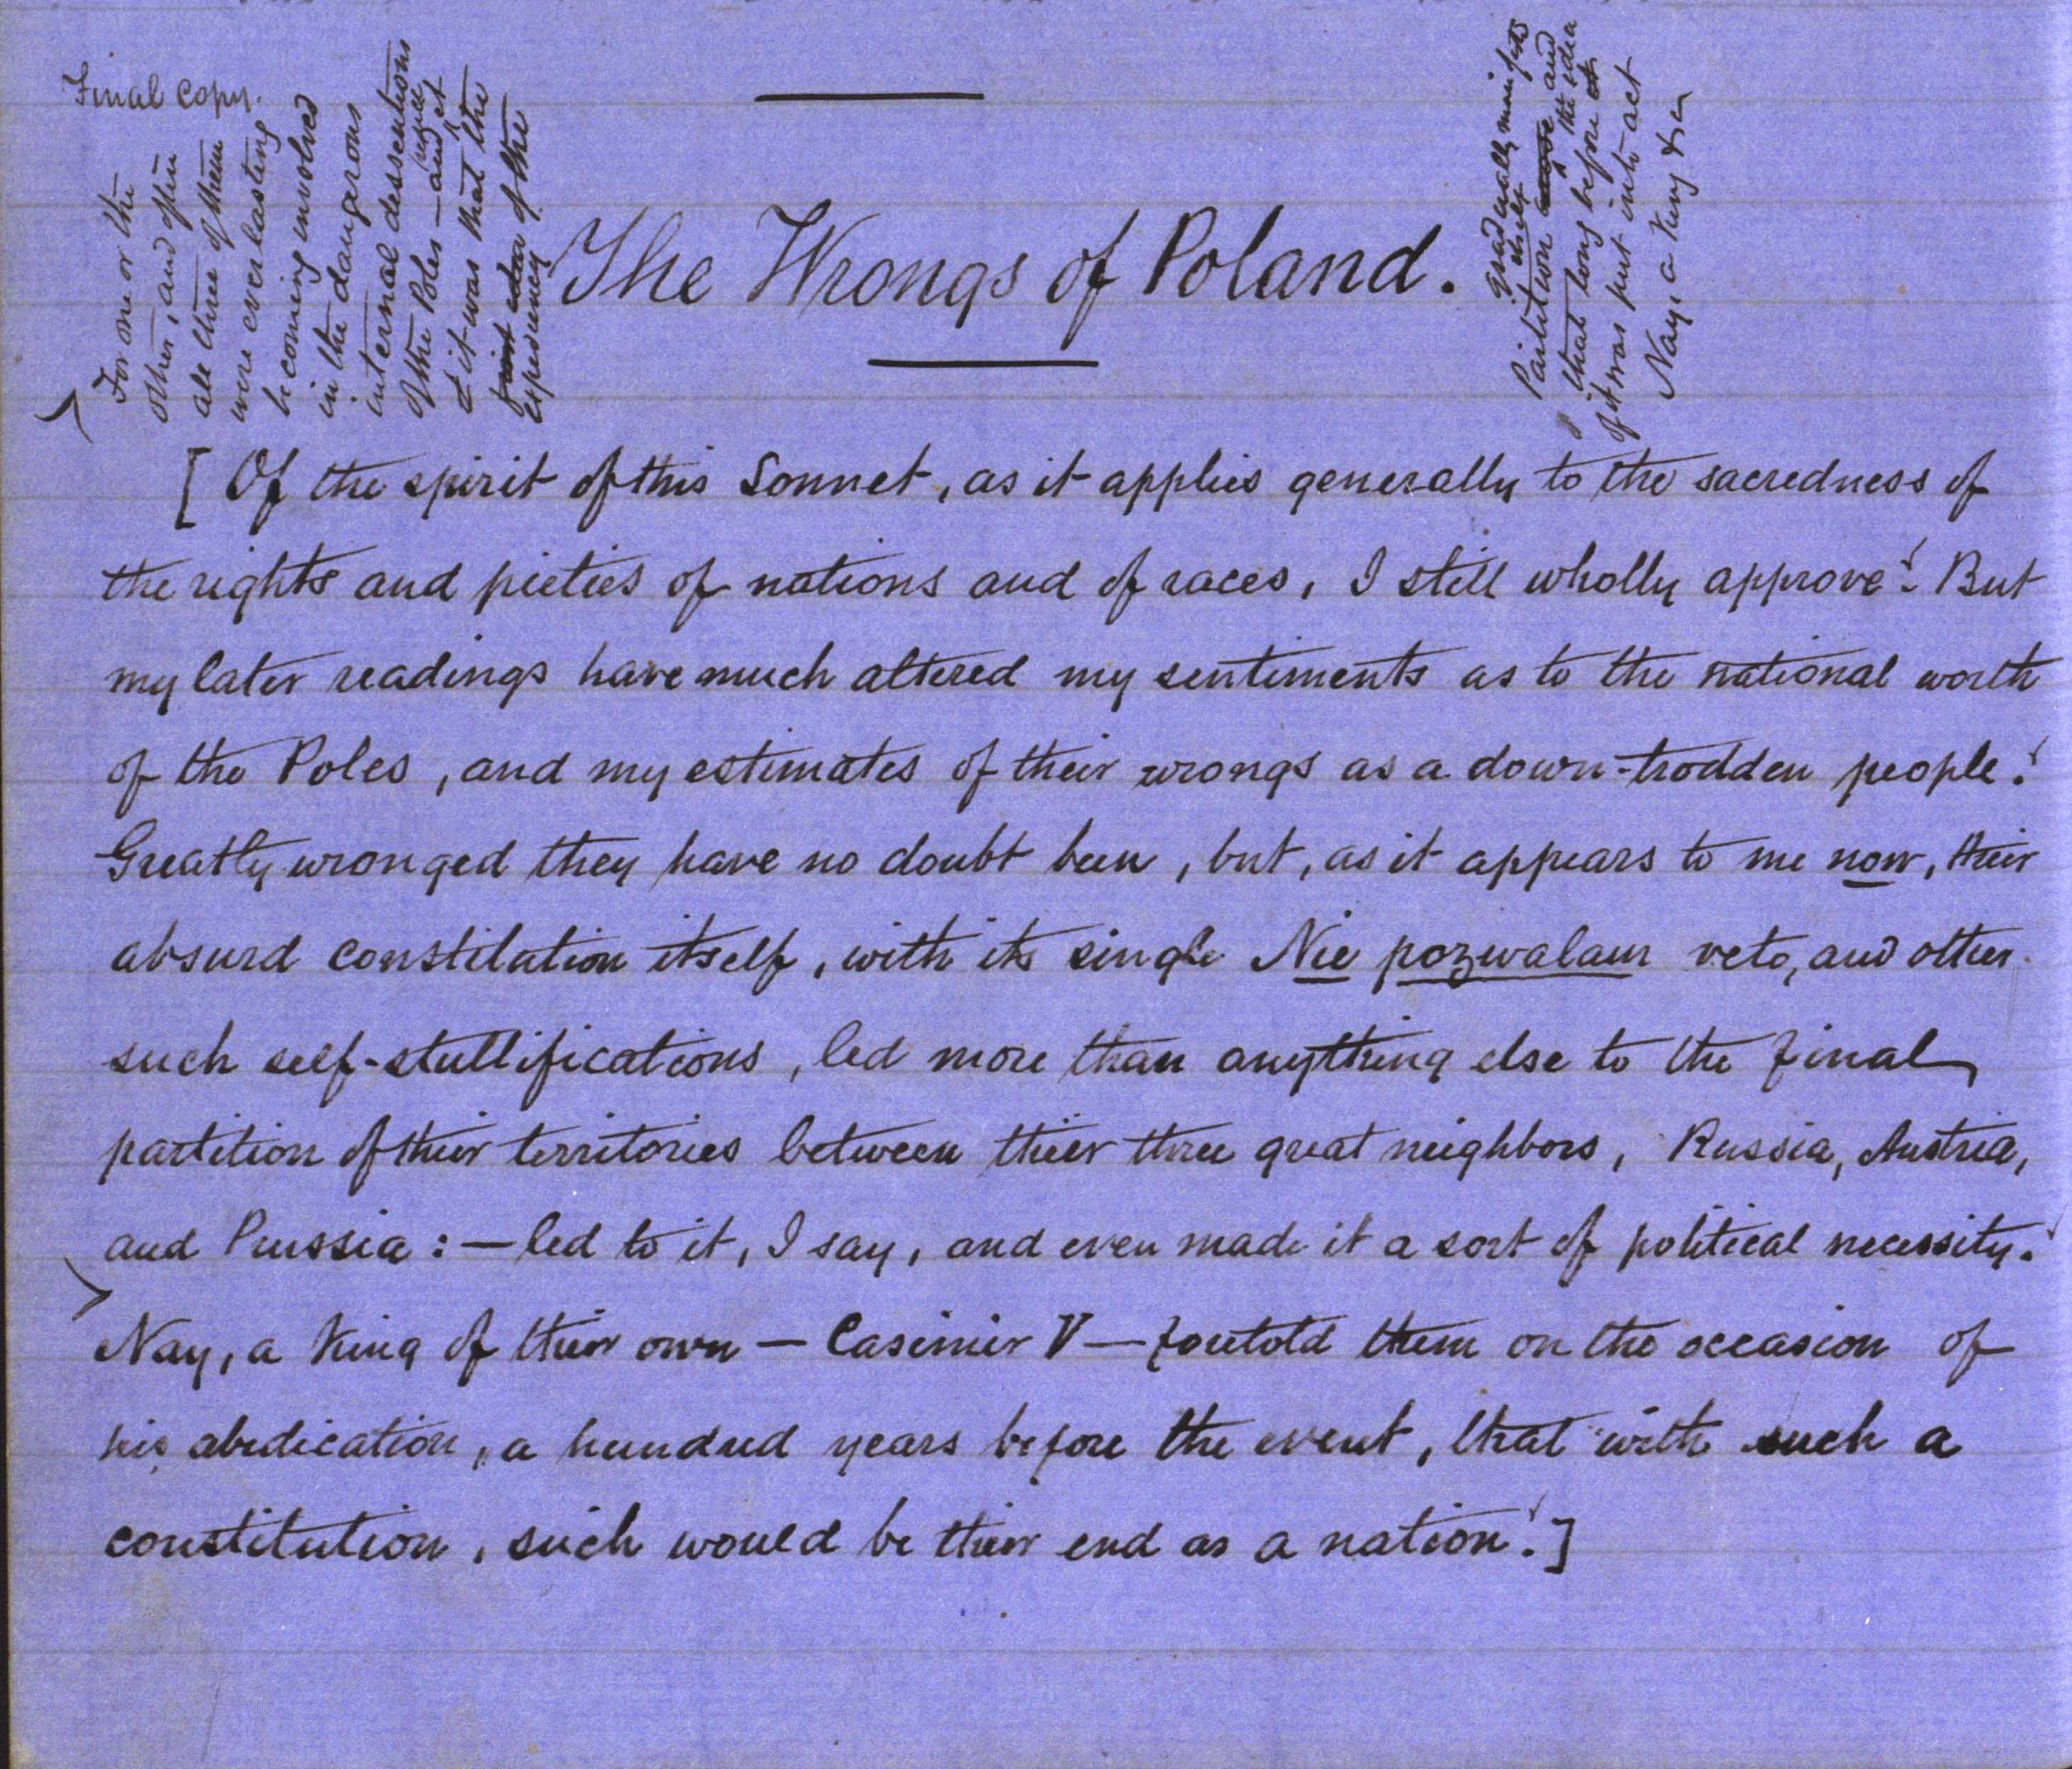 Final Copy.
For one or the
other, and often
all three of them
were everlasting
becoming involved
in the dangerous
internal dessentions
of the Poles — and
& it was that the
expediency of the
The Wrongs of Poland.
gradually manifested
itself
Partition and
the idea
that long before
of it was put into act
Nay, a King &c
[Of the spirit of this Sonnet, as it applies generally to the sacredness of
the rights and pieties of nations and of races, I still wholly approve! But
my later readings have much altered my sentiments as to the national worth
of the Poles, and my estimates of their wrongs as a down-trodden people!
Greatly wronged they have no doubt been, but, as it appears to me now, their
absurd constitution itself, with its single Nie pozwalam veto, and other
such self-stultifications, led more than anything else to the final
partition of their territories between their three great neighbors, Russia, Austria,
and Prussia: — led to it, I say, and even made it a sort of political necessity.
Nay, a King of their own — Casimir V — foretold them on the occasion of
his abdication, a hundred years before the event, that with such a
constitution, such would be their end as a nation!]